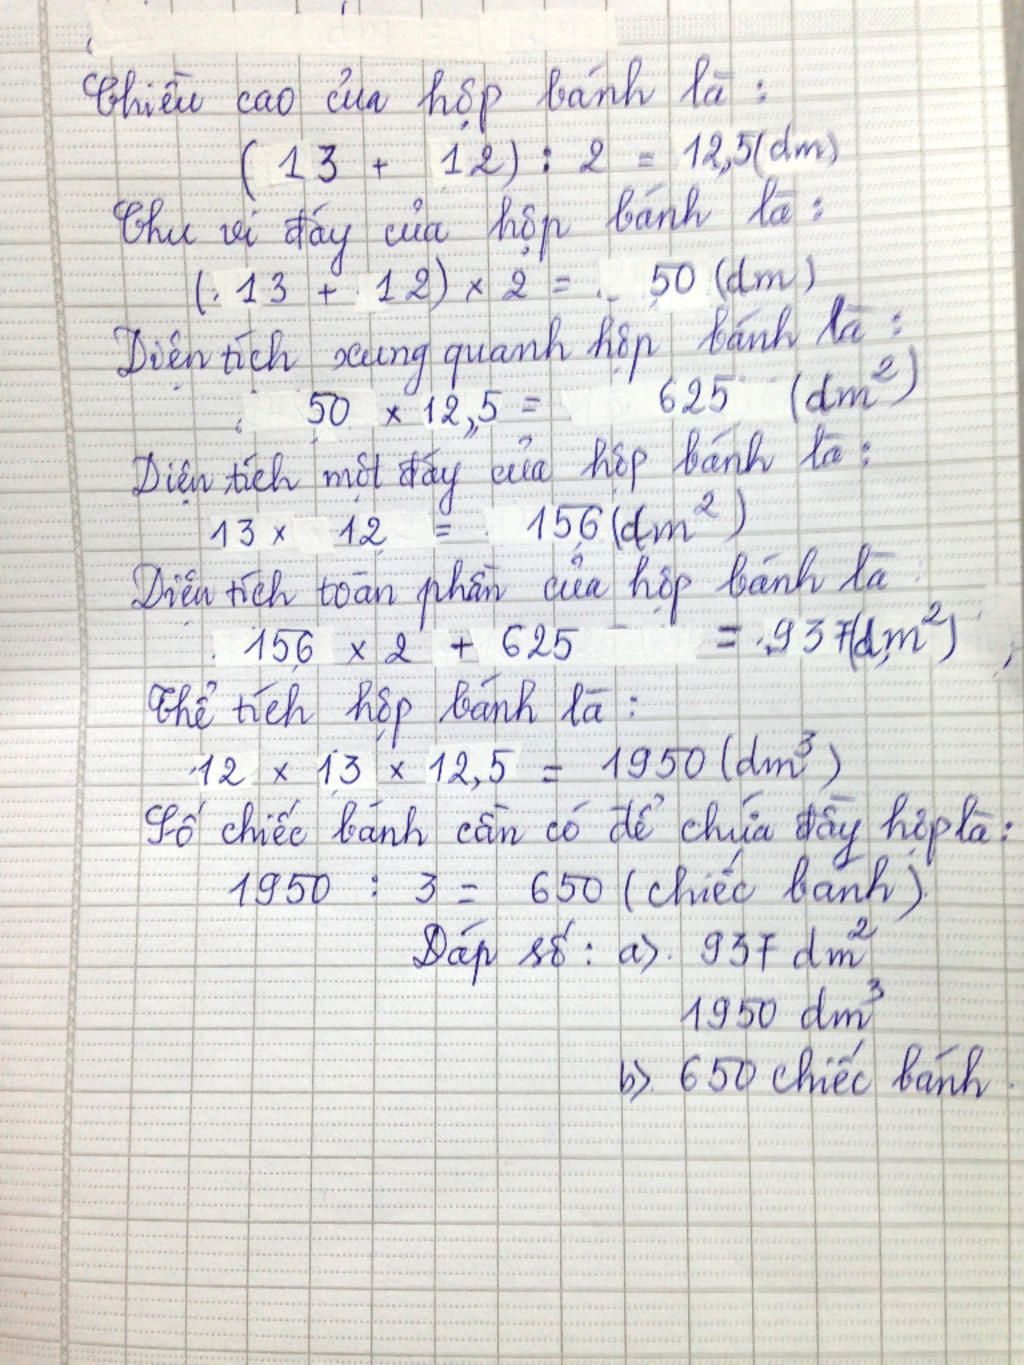 Chiều cao của hộp bánh là :
( 13 + 12 ) : 2 = 12,5 (dm)
Chu vi đáy của hộp bánh là :
( 13 + 12 ) × 2 = 50 (dm)
Diện tích xung quanh hộp bánh là :
50 × 12,5 = 625 (dm²)
Diện tích một đáy của hộp bánh là :
13 × 12 = 156 (dm²)
Diện tích toàn phần của hộp bánh là
156 × 2 + 625 = 937 (dm²)
Thể tích hộp bánh là :
12 × 13 × 12,5 = 1950 (dm³)
Số chiếc bánh cần có để chứa đầy hộp là :
1950 : 3 = 650 (chiếc bánh).
Đáp số : a). 937 dm²
1950 dm³
b). 650 chiếc bánh.